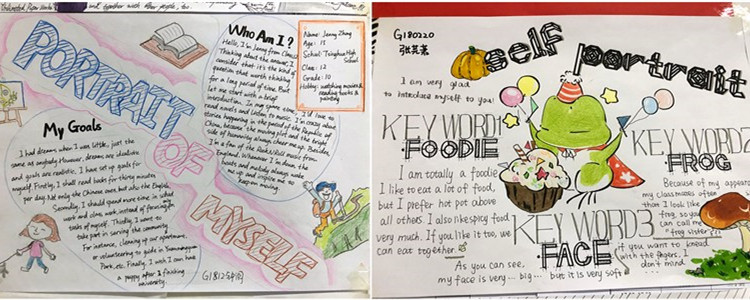 and together with other people, etc.
PORTRAIT
OF
MYSELF
Who Am I?
Hello, I'm Jenny from Class 12.
Thinking about the answer, I
consider that it's the kind of
question that worth thinking
for a long period of time. But
let me start with a brief
introduction. In my spare time, I'd like to
read novels and listen to music. I'm crazy about
stories happening in the period of the Republic of
China, because the moving plot and the bright
side of humanity always cheer me up. Besides,
I'm a fan of the Rock&Roll music from
England. Whenever I'm down,
beats and melody always wake
me up and inspire me to
keep moving.
Name: Jenny Zhang
Age: 15
School: Tsinghua High
School
Class: 12
Grade: 10
Hobby: watching movies &
reading books &
painting
My Goals
I had dreams when I was little, just the
same as anybody. However, dreams are illusive
and goals are realistic. I have set up goals for
myself. Firstly, I shall read books for thirty minutes
per day. Not only the Chinese ones, but also the English.
Secondly, I should spend more time in school
work and class work instead of
tasks of myself. Thirdly, I want to
take part in serving the community.
For instance, cleaning up our apartment,
or volunteering to guide in
Park, etc. Finally, I wish I can have
a puppy after I finishing
university.
G1812
G180220
self portrait
I am very glad
to introduce myself to you!
KEY WORD1
·FOODIE
I am totally a foodie
I like to eat a lot of food,
but I prefer hot pot above
all others. I also like spicy food
very much. If you like it too, we
can eat together
KEY WORD2
·FROG
Because of my appearance
my classmates often
than I look like
frog, so you
can call me
"frog sister"
KEY WORD3
·FACE
As you can see,
my face is very... big... but it is very soft
if you want to knead
with the fingers, I
don't mind